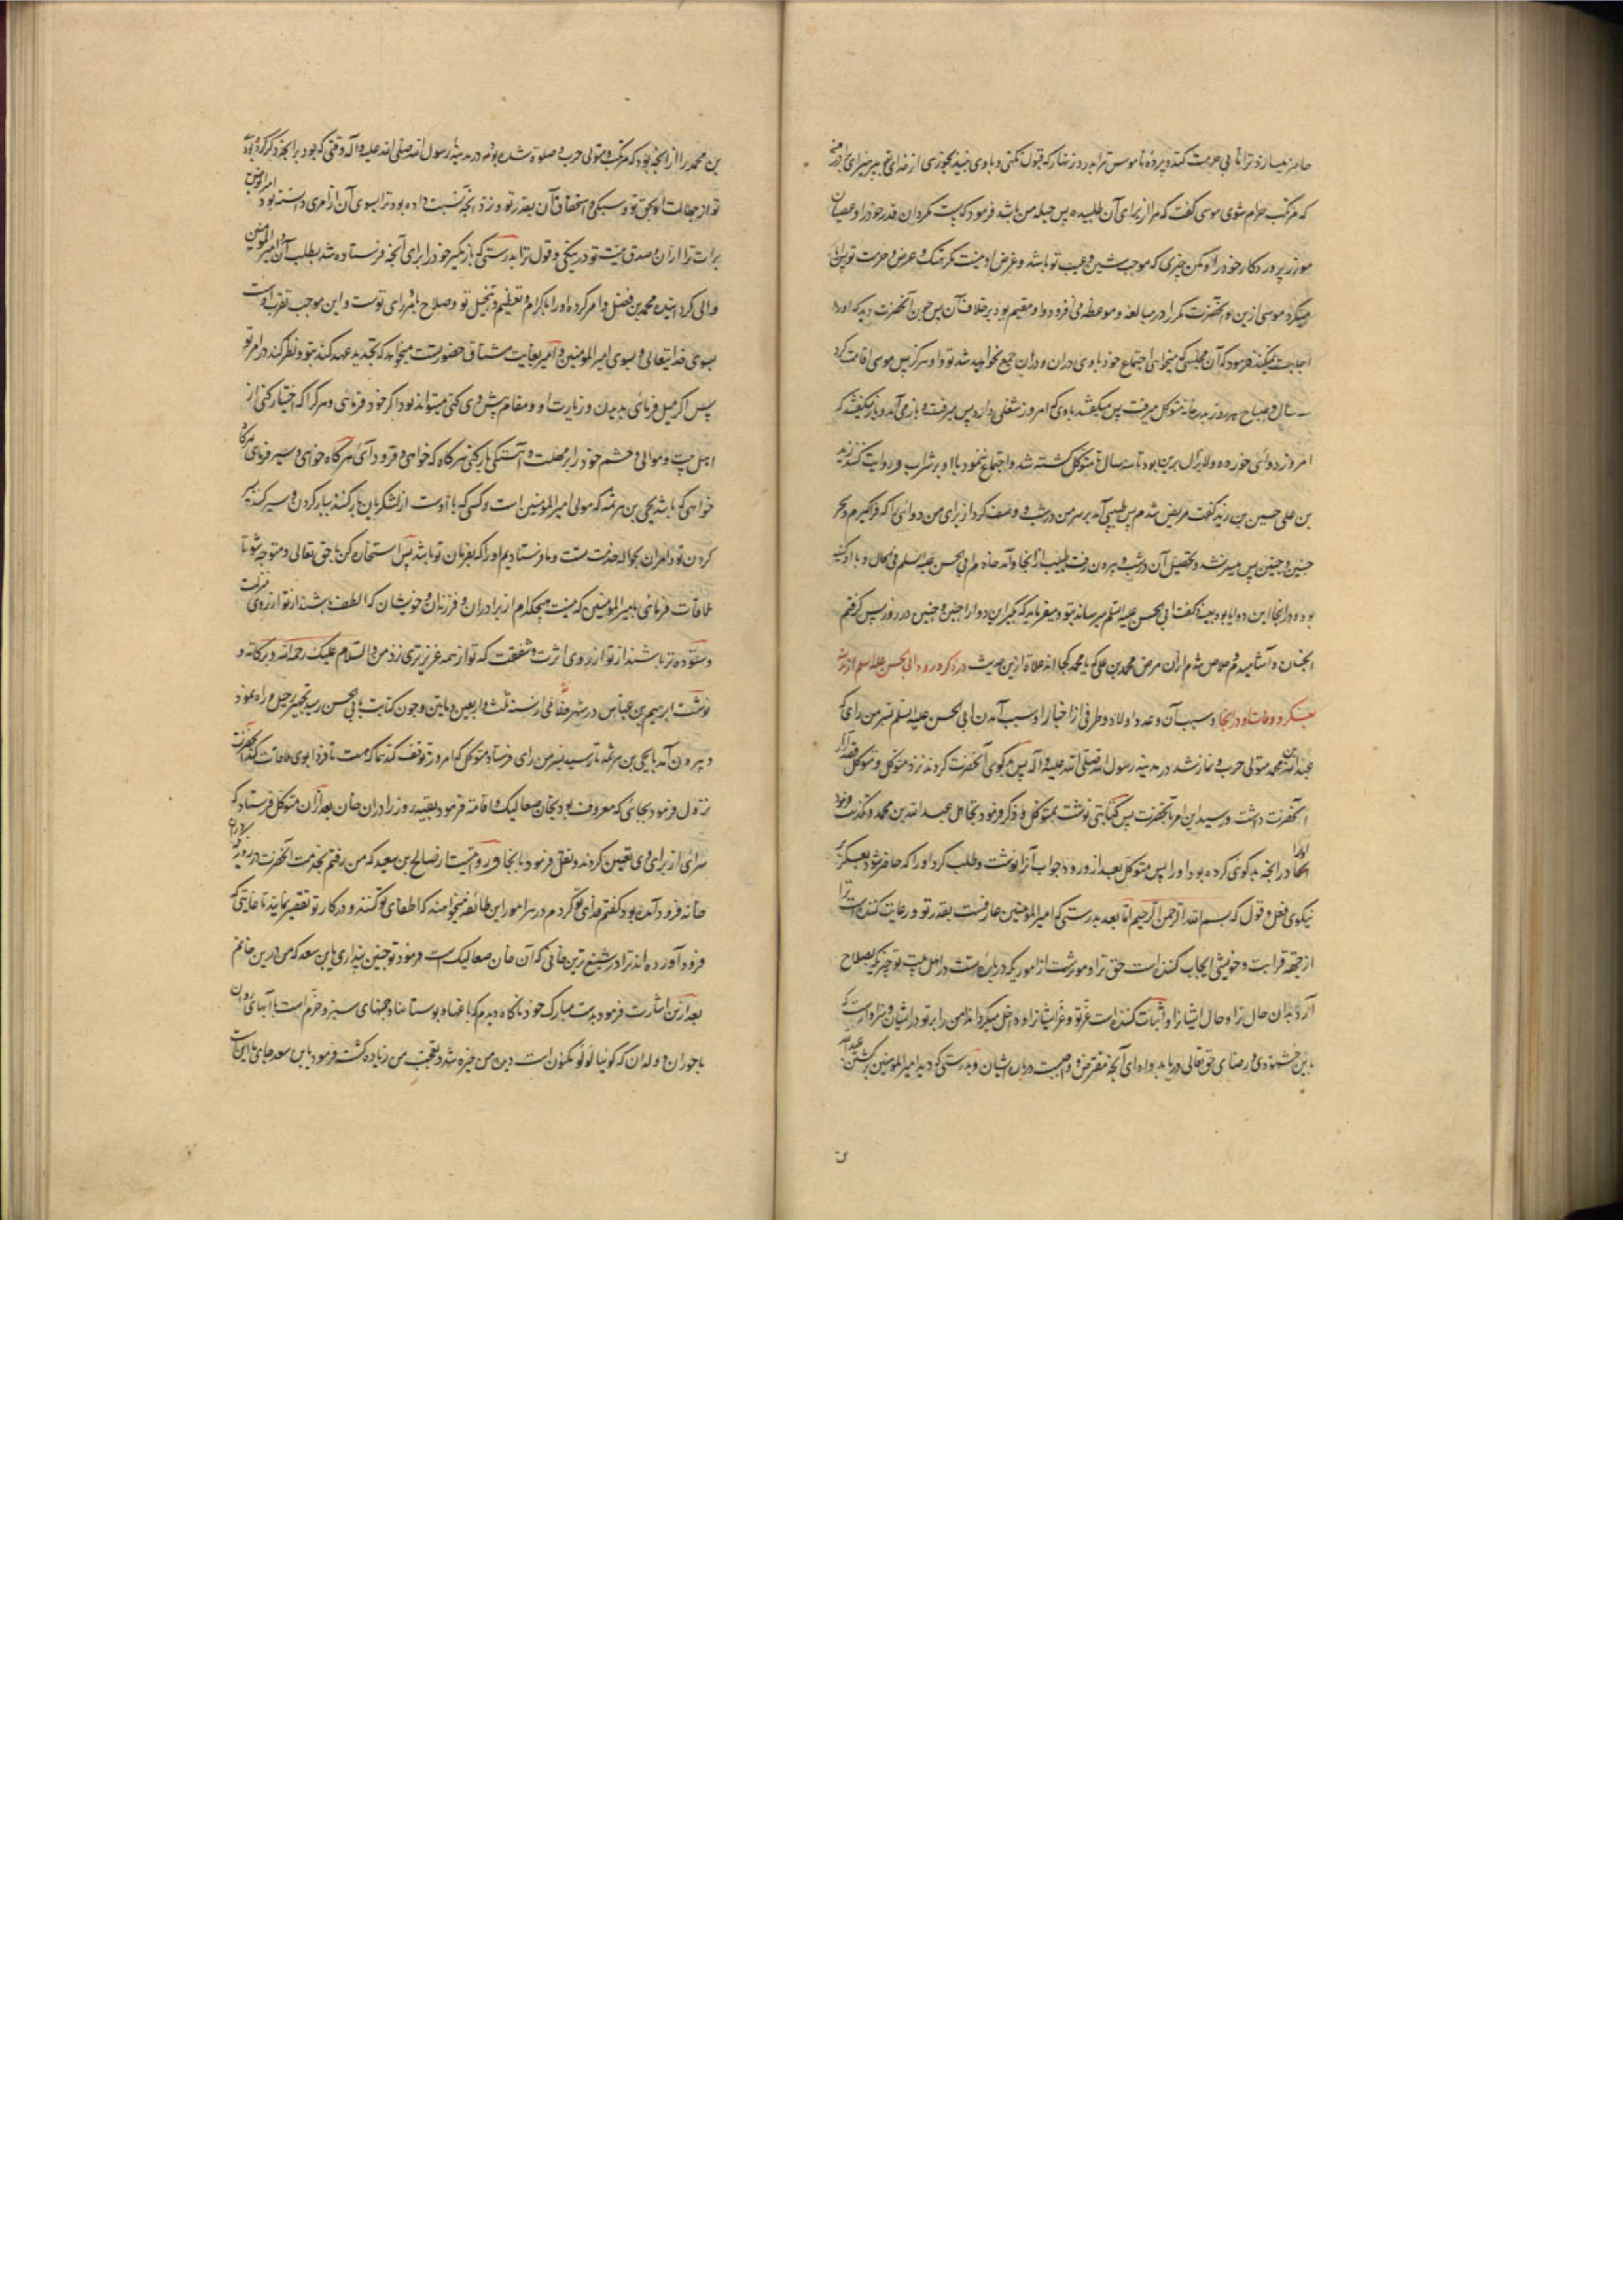 که مرتکب حرام شوی موسی گفت که مرا از برای آن طلبیده پس حیله من باشد فرمود که پست مگردان قدر خود را و عصیان
مورز پروردکار خود را و مکن چیزی که موجب شین و عیب تو باشد و غرض او نیست مگر هتک و عرض و حرمت تو پس ابا
میکرد موسی ازین و آنحضرت مکرر در مبالغه و موعظه می افزود و او مقیم بود بر خلاف آن پس چون آنحضرت دید که او را
اجابت نمیکند فرمود که آن مجلسی که میخواهی اجتماع خود با وی دران و دران جمع نخواهید شد تو و او هرگز پس موسی اقامت کرد
سال و صباح هر روز بدر خانه متوکل میرفت پس میکفتند باوی که امروز شغلی دارد پس میرفت و باز می آمد و باز میکفتند که
امروز دوائی خورده و لایزال برین بود تا سه سال تا متوکل کشته شد و اجتماع ننمود با او بر شراب و روایت کند زید
بن علی حسین بن زید گفت مریض شدم پس طبیبی آمد بر سر من در شب و وصف کرد از برای من دوائی را که فراگیرم در سحر
چنین و چنین پس میسر نشد تحصیل آن در شب و بیرون رفت طبیب از آنجا و آمد خادم ابی الحسن علیه السلم فی الحال و با او کیسه
بود و در آنجا این دوا بود بعینه گفت ابی الحسن علیه السلم میرساند بتو و میفرماید که بگیر این دوا را چنین و چنین در روز پس گرفتم
آنچنان و آشامیدم و خلاص شدم ازان مرض محمد بن علی که یا محمد کجا اند غلاة ازین حدیث در ذکر ورود ابی الحسن علیه السلم از مدینه
بعسکر و وفات او در آنجا و سبب آن و عدد اولاد و طرفی از اخبار او سبب آمدن ابی الحسن علیه السلم بسر من رای که
عبد الله بن محمد متولی حرب و نماز شد در مدینه رسول الله صلی الله علیه و اله پس بدگوی آنحضرت کردند نزد متوکل و متوکل قصد آزار
آنحضرت داشت و رسید این امر بآنحضرت پس کتابتی نوشت بمتوکل و ذکر فرمود تحامل عبد الله بن محمد و تکذیب فرمود
او را در آنچه بدگوئی کرده بود او را پس متوکل بعد از ورود جواب آنرا نوشت و طلب کرد او را که حاضر شود بعسکر
نیکوی فعل و قول که بسم الله الرحمن الرحیم اما بعد بدرستی که امیر المؤمنین عارفست بقدر تو و رعایت کننده است ترا
از جهة قرابت و خویشی ایجاب کننده است حق ترا و مورثست از اموریکه در باره تست و در اهل بیت تو چیزیکه بصلاح
آرد بدان حال ترا و حال ایشانرا و اثبات کننده است عز تو و عز ایشانرا و داخل میگرداند امن را بر تو و بر ایشان و سزاوار است که
باین خشنودی و رضای حق تعالی دریابد و ادای آنچه مفترض و واجبست در باره ایشان و بدرستی که دید امیر المؤمنین برکشتن عبد الله
بن محمد را از آنچه بود که مرتکب و متولی حرب و صلوة شده بود در مدینه رسول الله صلی الله علیه و آله وقتی که بود بر آنچه ذکر کرده بودی
تو از جهالت او بحق تو و سبکی و استخفاف آن بقدر تو و نزد آنچه نسبت داده بود ترا بسوی آن از امری دانسته بود امیر المؤمنین
برات ترا ازان و صدق نیت تو در نیکی و قول ترا بدرستی که باز نگیر خود را برای آنچه فرستاده شد بطلب آن و امیر المؤمنین
والی کردانیده محمد بن فضل و امر کرده او را باکرام و تعظیم و تبجیل تو و صلاح بامر و رای توست و این موجب تقرب اوست
بسوی خدایتعالی و بسوی امیر المؤمنین و امیر بغایت مشتاق حضور تست میخواهد که تجدید عهد کند بتو و نظر کند در امر تو
پس اگر میل فرمائی بدیدن و زیارت او و مقام پیش وی کنی میتواند بود اگر خود فرمائی و هر کرا که اختیار کنی از
اهل بیت و موالی و حشم خود را بر مهلت و آهستگی بار کنی هر گاه که خواهی و فرود آئی هر گاه خواهی و سیر فرمائی هر گاه
خواهی که باشد یحیی بن هرثمه که مولی امیر المؤمنین است و کسی که با اوست از لشکریان بار کنند ببار کردن و سیر کنند بسیر
کردن تو و امر آن بحواله حضرت تست و ما فرستادیم او را که بفرمان تو باشد پس استخاره کن با حق تعالی و متوجه شو تا
ملاقات فرمائی بامیر المؤمنین که نیست هیچکدام از برادران و فرزندان و خویشان که الطف باشند از تو از روی منزلت
و ستوده تر باشند از تو از روی اثرت و شفقت که تو از همه عزیزتری نزد من و السلام علیک و رحمة الله و برکاته و
نوشت ابرهیم بن عباس در شهر فلانی از سنه ثلث و اربعین و ماتین و چون کتابت بابی الحسن رسید تجهیز رحیل و راه نمود
و بیرون آمد با یحیی بن هرثمه تا رسید بسر من رای فرستاد متوکل که امروز توقف کند هما که هست تا فردا بوی ملاقات کند آنحضرت
نزول فرمود بجائی که معروف بود بخان صعالیک و اقامة فرمود بقیه روز را دران خان بعد ازان متوکل فرستاد که
سرای از برای وی تعیین کردند و نقل فرمود بآنجا و روایتست از صالح بن سعید که من رفتم بخدمت آنحضرت در روزیکه بدان
خانه فرود آمده بود گفتم فدای تو گردم در هر امور این طائفه میخواهند که اطفای نور تو کنند و در کار تو تقصیر نمایند تا غایتی که
فرود آورده اند ترا در شنیع ترین خانی که آن خان صعالیک است فرمود تو چنین پنداری یا بن سعد که من درین خانم
بعد ازین اشارت فرمود بدست مبارک خود ناگاه دیدم که باغها و بوستانها و چمنهای سبز و خرم است با آبهای روان
با حوران و ولدان که گوئیا لولو مکنون است دیده من خیره شد و تعجب من زیاده گشت فرمود یابن سعد جای ما اینست